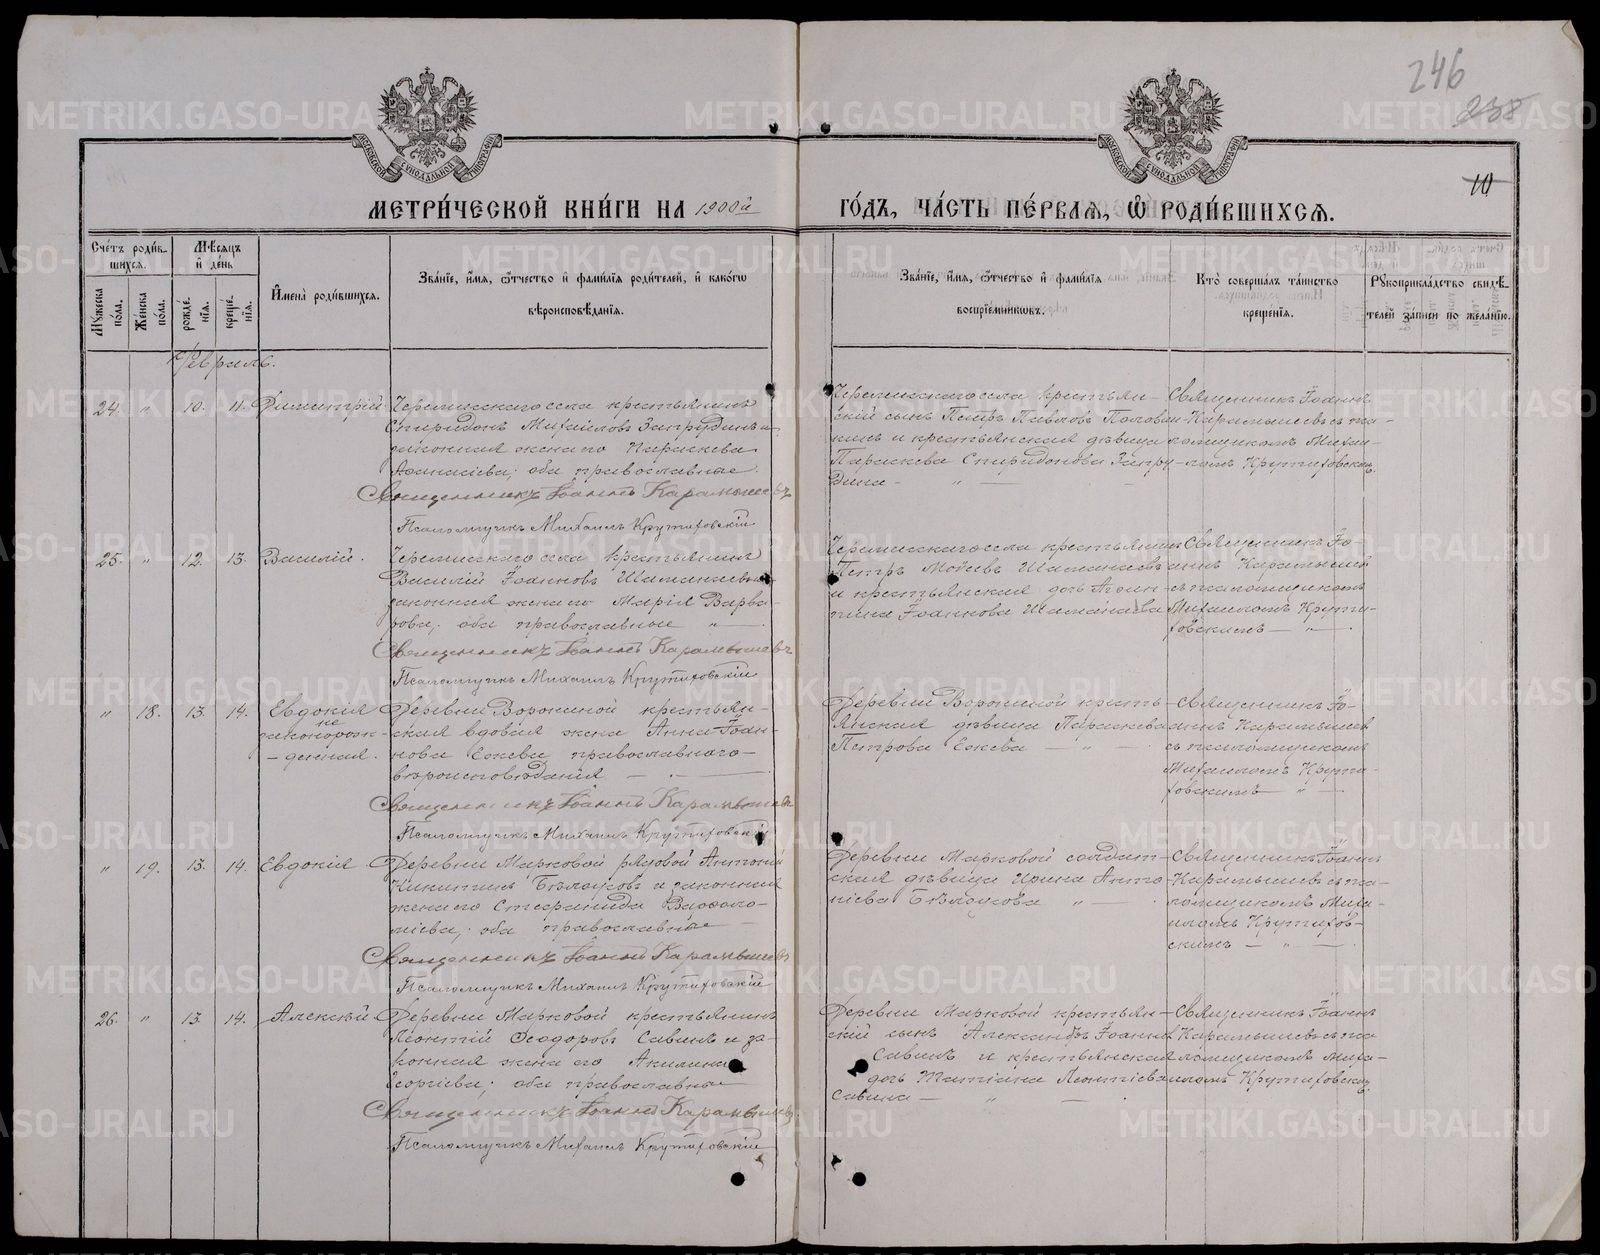 246
238
10
МОСКОВСКОЙ СѴНОДАЛЬНОЙ ТИПОГРАФІИ
МОСКОВСКОЙ СѴНОДАЛЬНОЙ ТИПОГРАФІИ
МЕТРИ́ЧЕСКОЙ КНИ́ГИ НА 1900й
ГО́ДЪ, ЧА́СТЬ ПЕ́РВАѦ, Ѽ РОДИ́ВШИХСѦ.
Сче́тъ роди́в-
шихсѧ.
Мѣ́сѧцъ
и́ де́нь
Му́жеска по́ла.
Же́нска по́ла.
рожде́-
нїѧ.
креще́-
нїѧ.
И҆мена̀ роди́вшихсѧ.
Зва́нїе, и́мѧ, ѻ҆́тчество и҆ фами́лїѧ роди́телей, и҆ како́гѡ
вѣроисповѣ́данїѧ.
Зва́нїе, и́мѧ, ѻ҆́тчество и҆ фами́лїѧ
воспрїе́мникѡвъ.
Кто̀ соверша́лъ та́инство
креще́нїѧ.
Рꙋкоприкла́дство свидѣ́-
телей за́писи по жела́нїю.
Февраль.
24. " 10. 11. Димитрій
Черемисскаго села крестьянинъ
Спиридонъ Михаиловъ Запрудинъ и
законная жена его Параскева
Аѳанасіева; оба православные.
Священникъ Іоаннъ Карамышевъ
Псаломщикъ Михаилъ Крутиховскій
Черемисскаго села крестьян-
скій сынъ Петръ Павловъ Полови-
кинъ и крестьянская дѣвица
Параскева Спиридонова Запру-
дина - " —
Священникъ Іоаннъ
Карамышевъ съ пса-
ломщикомъ Михаи-
ломъ Крутиховскимъ.
25. " 12. 13. Василій.
Черемисскаго села крестьянинъ
Василій Іоанновъ Шаманаевъ и
законная жена его Марія Варва-
рова; оба православные " —
Священникъ Іоаннъ Карамышевъ
Псаломщикъ Михаилъ Крутиховскій
Черемисскаго села крестьянинъ
Петръ Моѵсеевъ Шаманаевъ
и крестьянская дочь Агрип-
пина Іоаннова Шаманаева
Священникъ Іо-
аннъ Карамышевъ
съ псаломщикомъ
Михаиломъ Крути-
ховскимъ — " —.
" 18. 13. 14. Евдокія
незаконорож-
- денная.
Деревни Ворониной крестьян-
ская вдовая жена Анна Іоан-
нова Ежева православнаго
вѣроисповѣданія —
Священникъ Іоаннъ Карамышевъ
Псаломщикъ Михаилъ Крутиховскій
Деревни Ворониной кресть-
янская дѣвица Параскева
Петрова Ежева — " —.
Священникъ Іо-
аннъ Карамышевъ
съ псаломщикомъ
Михаиломъ Крути-
ховскимъ — " —
" 19. 13. 14. Евдокія
Деревни Марковой рядовой Антоній
Никитинъ Бѣлоусовъ и законная
жена его Стефанида Варѳоло-
міева; оба православные —
Священникъ Іоаннъ Карамышевъ
Псаломщикъ Михаилъ Крутиховскій
Деревни Марковой солдат-
ская дѣвица Ирина Анто-
ніева Бѣлоусова " —.
Священникъ Іоаннъ
Карамышевъ съ пса-
ломщикомъ Миха-
иломъ Крутихов-
скимъ — " —.
26. " 13. 14. Алексій
Деревни Марковой крестьянинъ
Леонтій Ѳеодоровъ Савинъ и за-
конная жена его Акилина
Георгіева; оба православные
Священникъ Іоаннъ Карамышевъ
Псаломщикъ Михаилъ Крутиховскій
Деревни Марковой крестьян-
скій сынъ Александръ Іоаннов
Савинъ и крестьянская
дочь Татіана Леонтіева
Савина — " —.
Священникъ Іоаннъ
Карамышевъ съ пса-
ломщикомъ Миха-
иломъ Крутиховскимъ.
METRIKI.GASO-URAL.RU